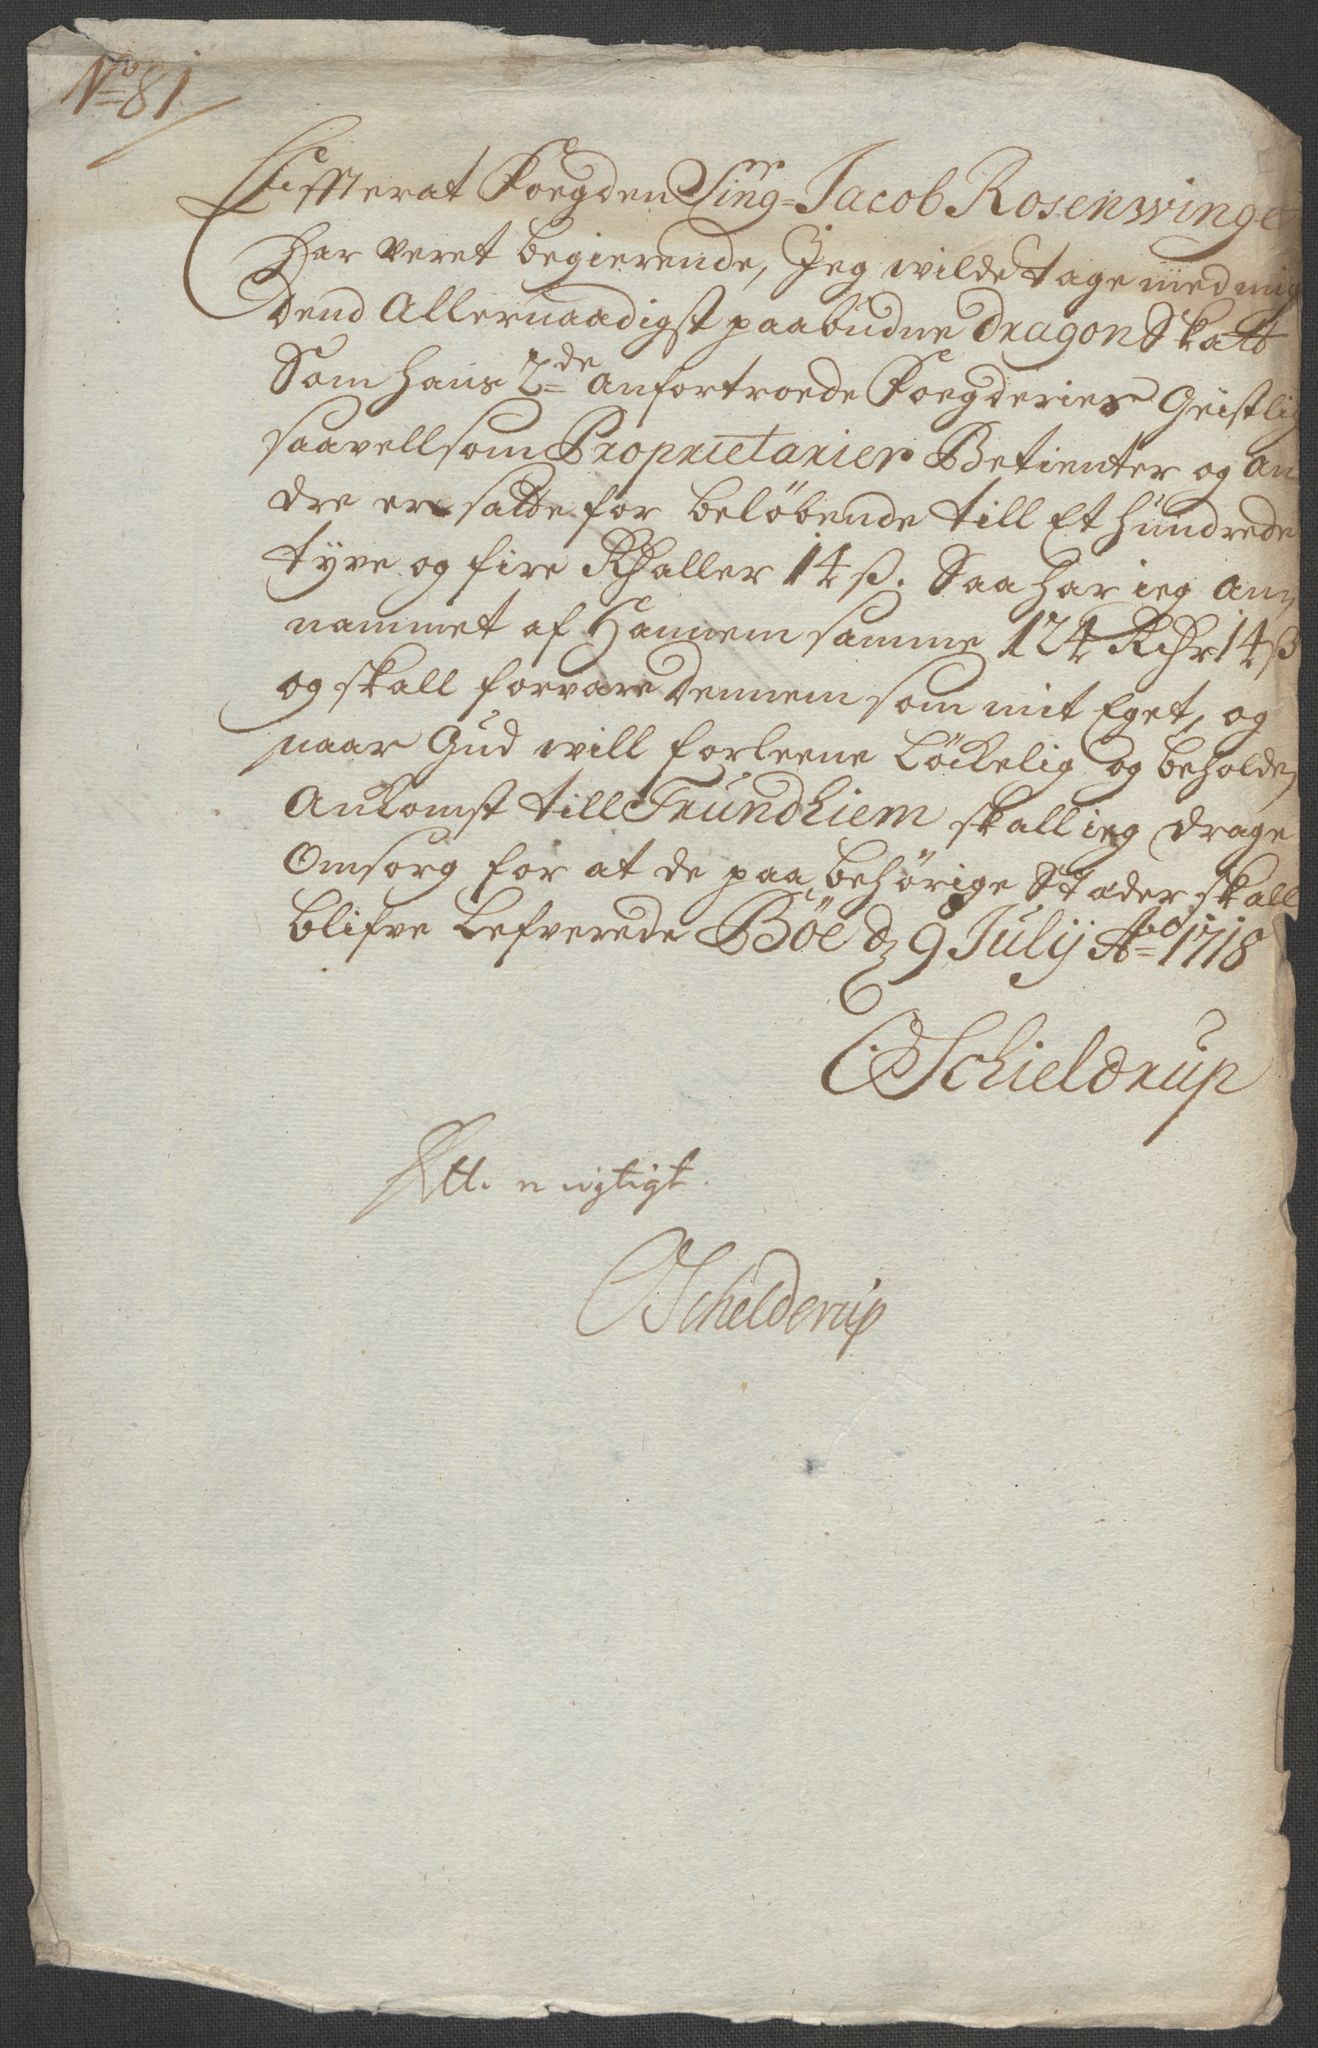 No 81
Effterat Foegden Sing=r Jacob Rosenwinge
har veret begierende, Jeg wilde tage med mig
dend Allernaadigst paabudne dragon Skatt
Som hans 2de anfortroede Foegderies Geistlig
saavellsom Proprietarier Betienter og an
dre er satte for beløbende till Et hundrede
tyve og fire Rdaller 14 ß. Saa har ieg an,
nammet af Hannem samme 124 Rdr 14 ß
og skall forvare dennem som mit Eget, og
naar Gud will forleene Löckelig og beholden
Ankomst till Trundhiem skall ieg drage
Omsorg for at de paa behørige Stæder skall
blifve Lefverede Böe d 9 July Ao 1718
Schieldrup
rigtigt.
Schelderup